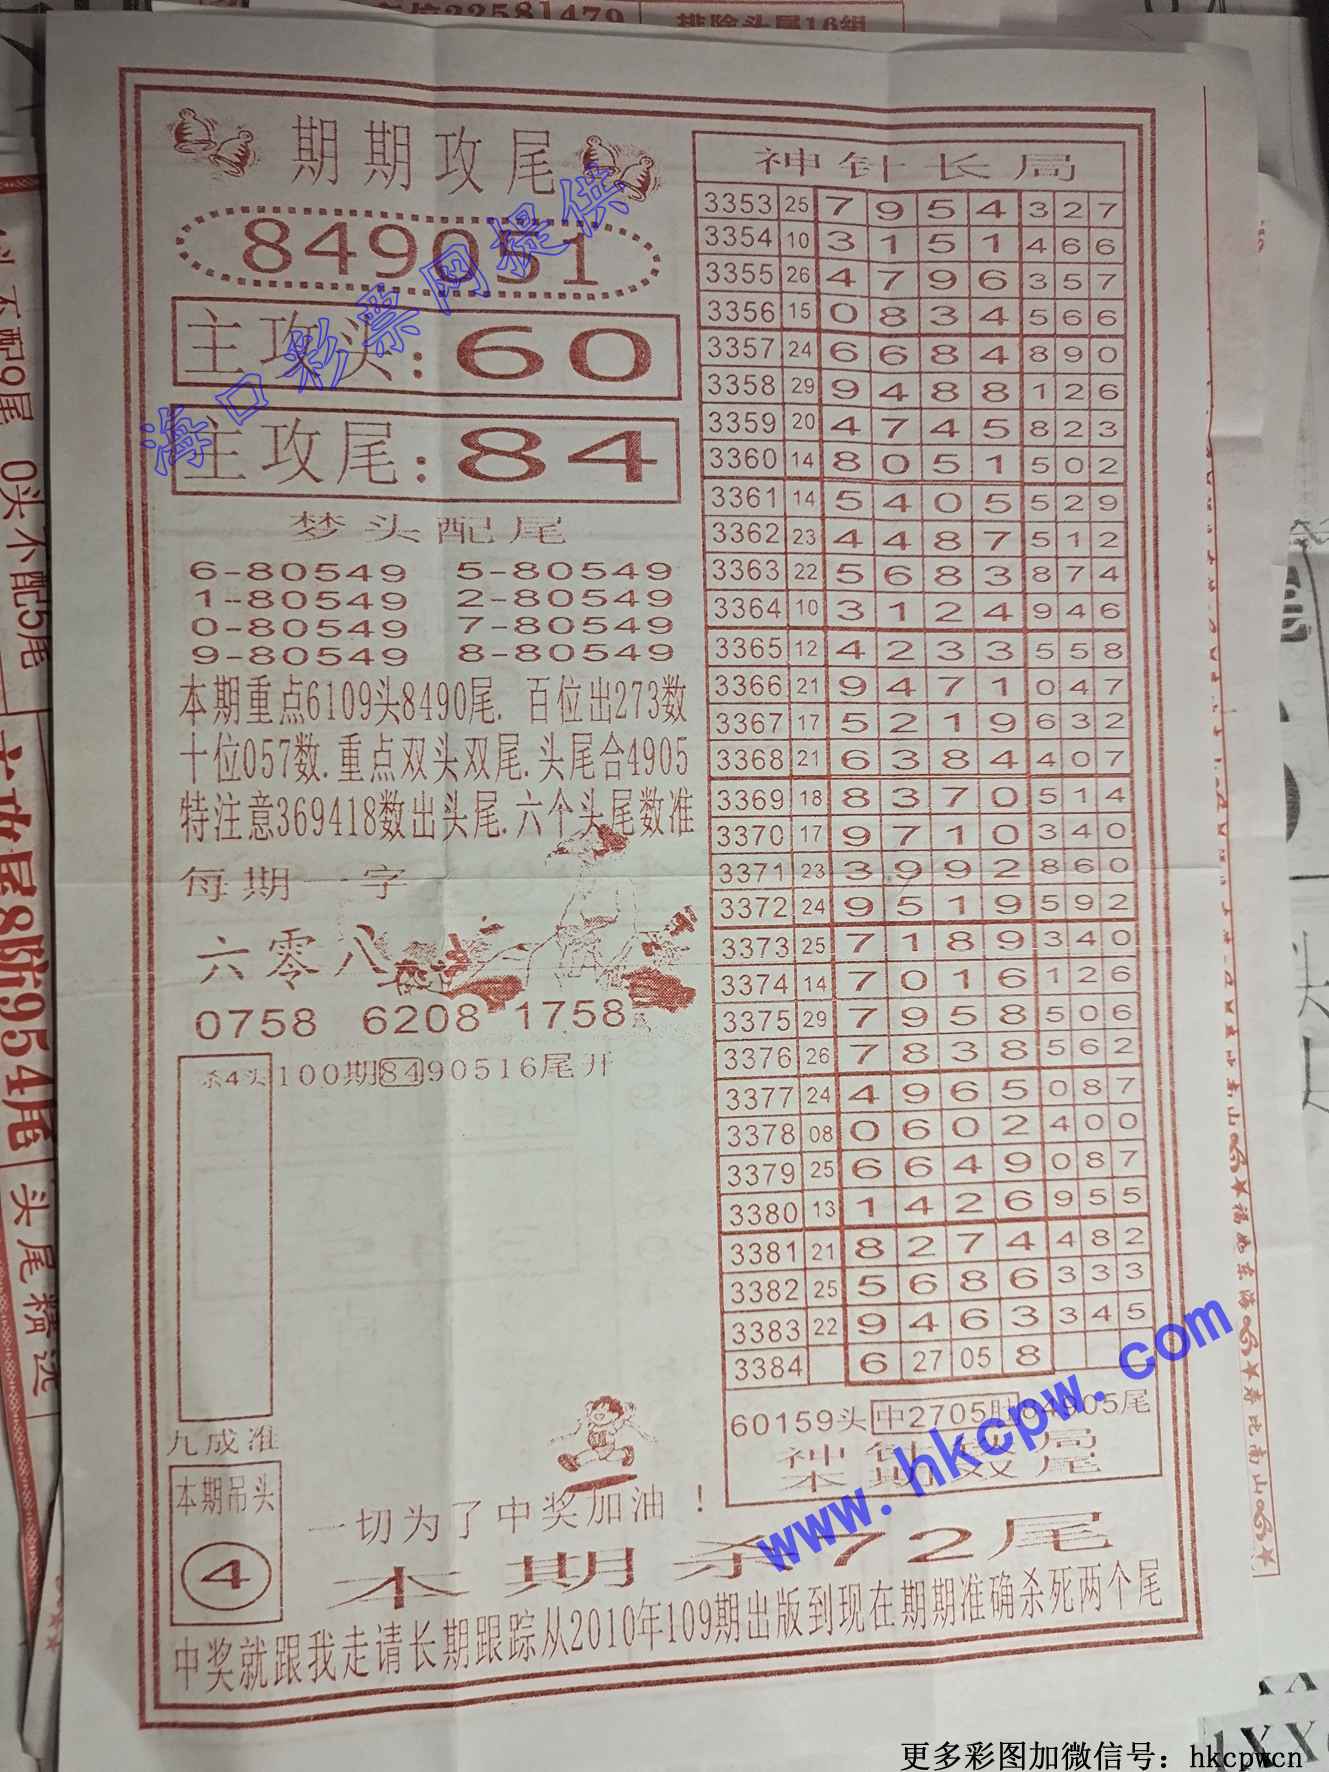 期期攻尾
849051
主攻头:60
主攻尾:84
梦头配尾
6-80549 5-80549
1-80549 2-80549
0-80549 7-80549
9-80549 8-80549
本期重点6109头8490尾.百位出273数
十位057数.重点双头双尾.头尾合4905
特注意369418数出头尾.六个头尾数准
每期一字
六零八
0758 6208 1758
杀4头100期8490516尾开
九成准
本期吊头
4
一切为了中奖加油!
本期杀72尾
中奖就跟我走请长期跟踪从2010年109期出版到现在期期准确杀死两个尾
神针长局
3353 25 7 9 5 4 3 2 7
3354 10 3 1 5 1 4 6 6
3355 26 4 7 9 6 3 5 7
3356 15 0 8 3 4 5 6 6
3357 24 6 6 8 4 8 9 0
3358 29 9 4 8 8 1 2 6
3359 20 4 7 4 5 8 2 3
3360 14 8 0 5 1 5 0 2
3361 14 5 4 0 5 5 2 9
3362 23 4 4 8 7 5 1 2
3363 22 5 6 8 3 8 7 4
3364 10 3 1 2 4 9 4 6
3365 12 4 2 3 3 5 5 8
3366 21 9 4 7 1 0 4 7
3367 17 5 2 1 9 6 3 2
3368 21 6 3 8 4 4 0 7
3369 18 8 3 7 0 5 1 4
3370 17 9 7 1 0 3 4 0
3371 23 3 9 9 2 8 6 0
3372 24 9 5 1 9 5 9 2
3373 25 7 1 8 9 3 4 0
3374 14 7 0 1 6 1 2 6
3375 29 7 9 5 8 5 0 6
3376 26 7 8 3 8 5 6 2
3377 24 4 9 6 5 0 8 7
3378 08 0 6 0 2 4 0 0
3379 25 6 6 4 9 0 8 7
3380 13 1 4 2 6 9 5 5
3381 21 8 2 7 4 4 8 2
3382 25 5 6 8 6 3 3 3
3383 22 9 4 6 3 3 4 5
3384 6 27 05 8
60159头中2705肚84905尾
本期双尾
海口彩票网提供
www.hkcpw.com
不配9尾 0头不配5尾
头尾精选
排除头尾16组
更多彩图加微信号：hkcpwcn